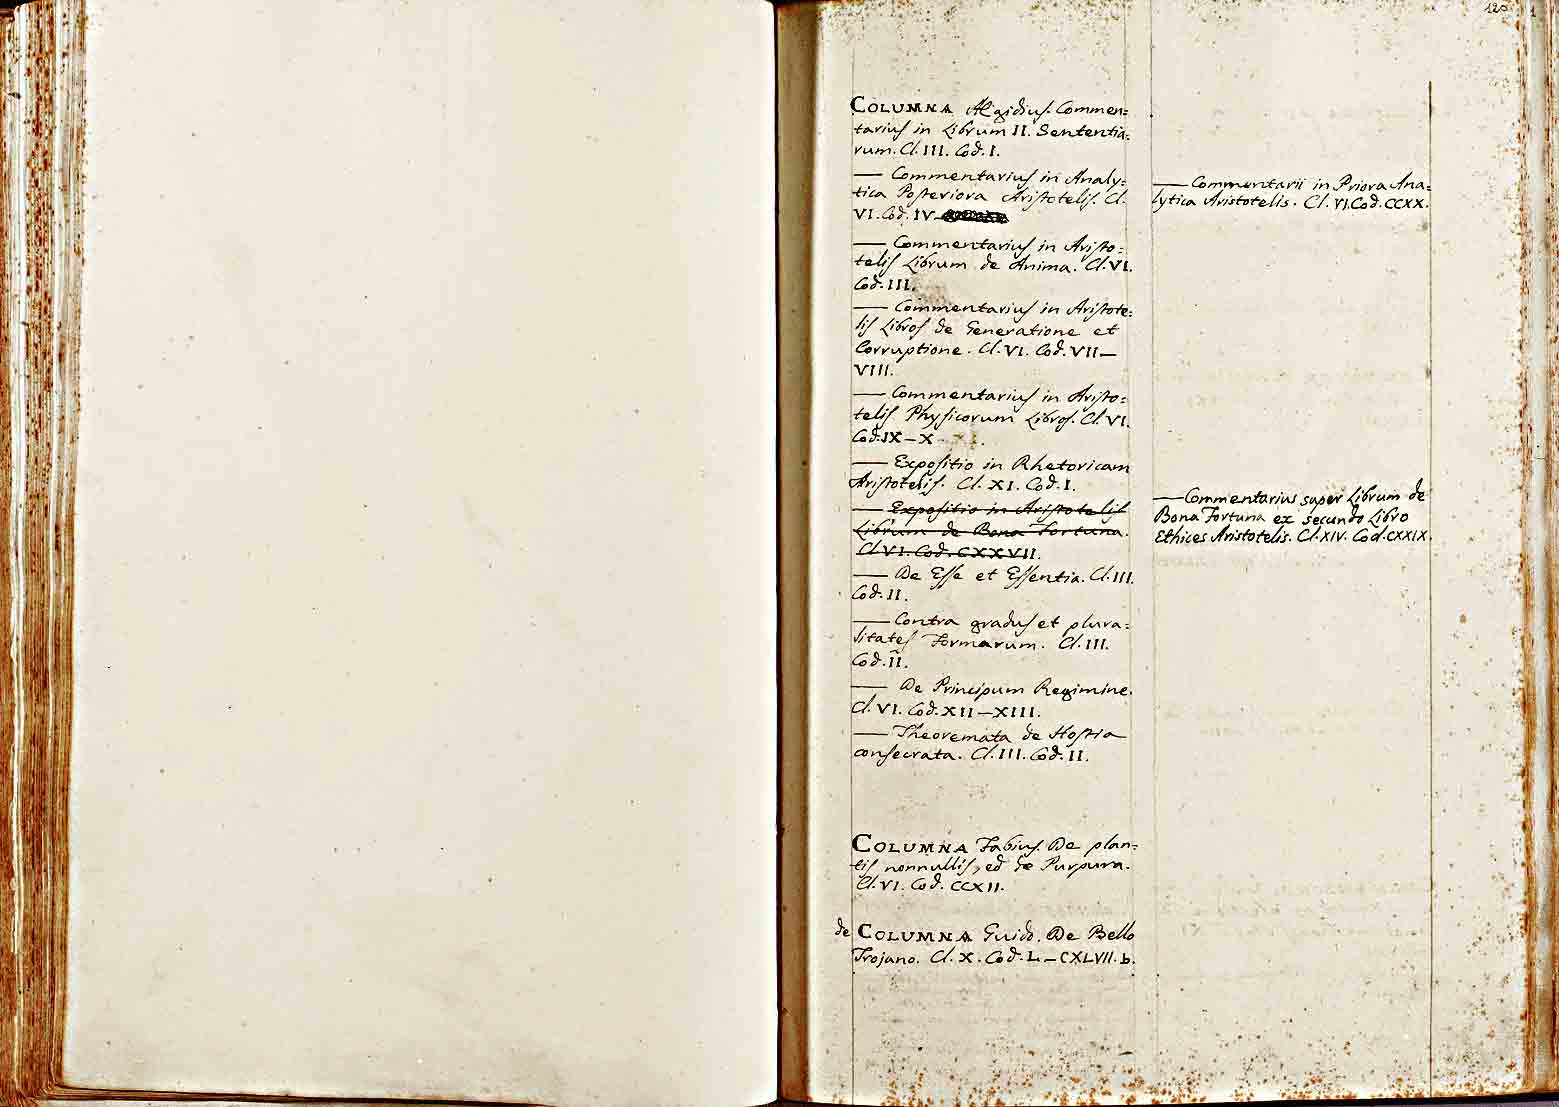 120
COLUMNA Ægidius. Commen=
tarius in Librum II. Sententia=
rum. Cl. III. Cod. I.
— Commentarius in Analy=
tica Posteriora Aristotelis. Cl.
VI. Cod. IV
— Commentarius in Aristo=
telis Librum de Anima. Cl. VI.
Cod. III.
— Commentarius in Aristote=
lis Libros de Generatione et
Corruptione. Cl. VI. Cod. VII—
VIII.
— Commentarius in Aristo=
telis Physicorum Libros. Cl. VI.
Cod. IX — X
— Expositio in Rhetoricam
Aristotelis. Cl. XI. Cod. I.
— Expositio in Aristotelis
Librum de Bona Fortuna.
Cl. VI. Cod. CXXVII.
— De Esse et Essentia. Cl. III.
Cod. II.
— Contra gradus et plura=
litates Formarum. Cl. III.
Cod. II.
— De Principum Regimine.
Cl. VI. Cod. XII — XIII.
— Theoremata de Hostia
consecrata. Cl. III. Cod. II.
COLUMNA Fabius. De plan=
tis nonnullis, ed de Purpura.
Cl. VI. Cod. CCXII.
de COLUMNA Guido. De Bello
Trojano. Cl. X. Cod. L — CXLVII. b.
— Commentarii in Priora Ana=
lytica Aristotelis. Cl. VI. Cod. CCXX.
— Commentarius super Librum de
Bona Fortuna ex secundo Libro
Ethices Aristotelis. Cl. XIV. Cod. CXXIX.